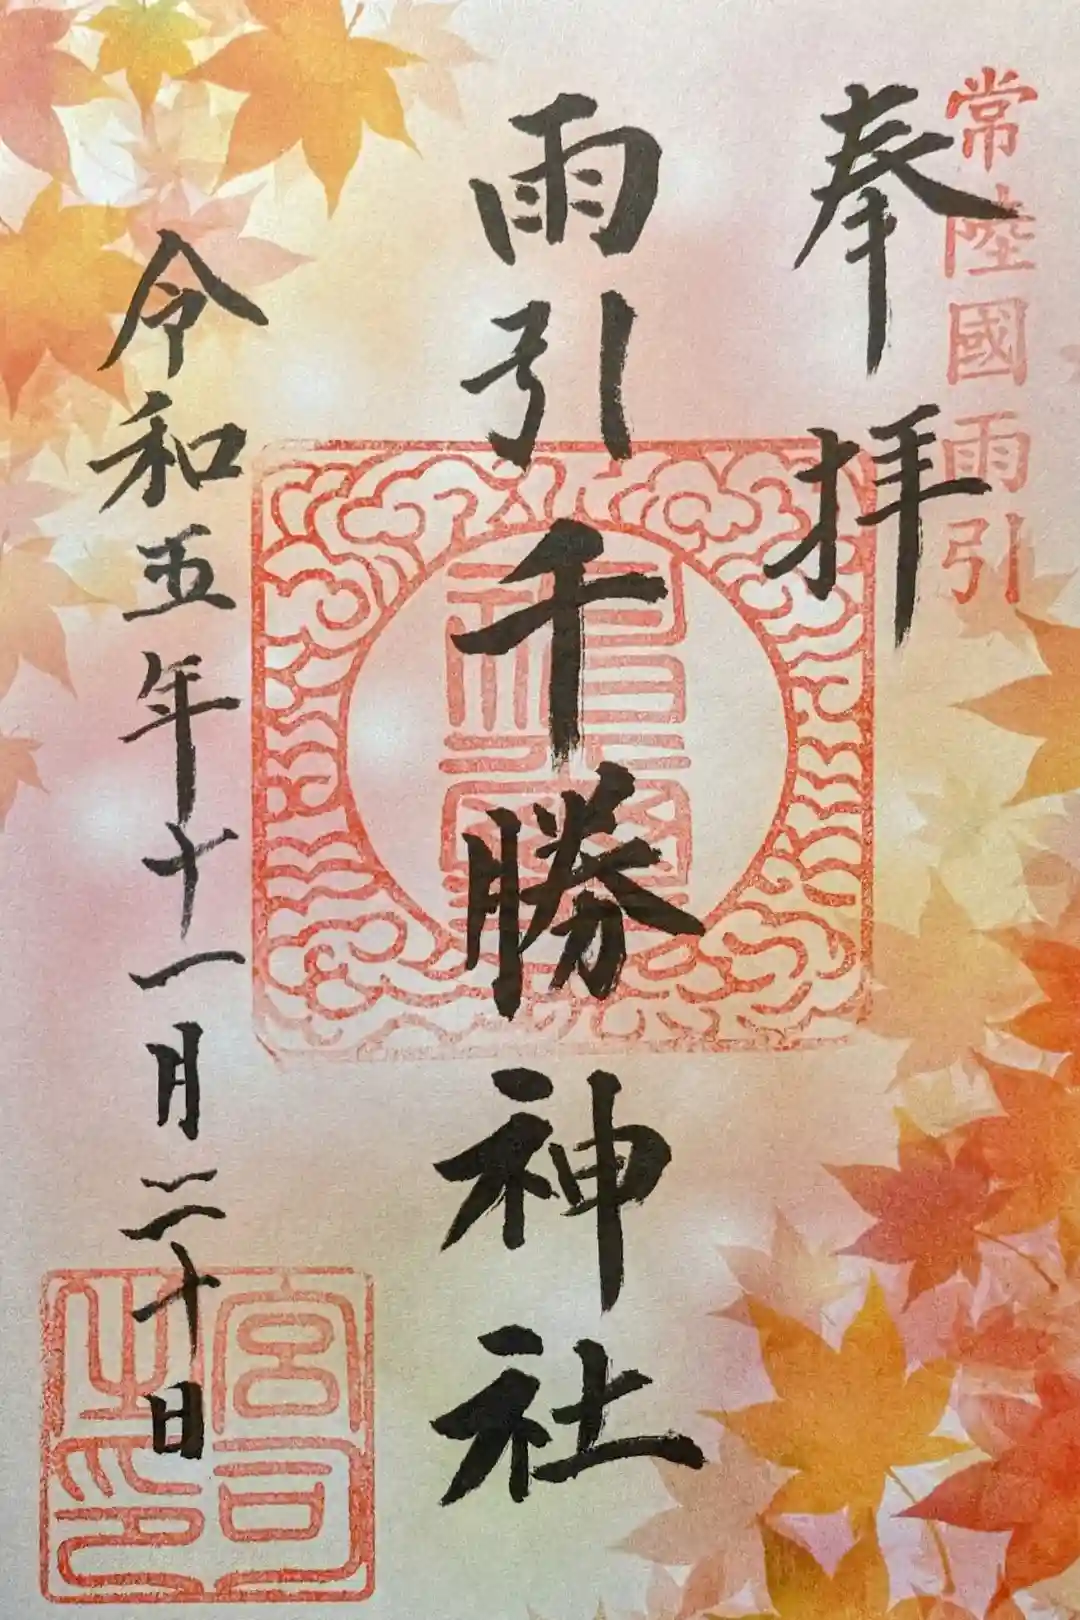 常陸國雨引
奉拝
雨引千勝神社
令和五年十一月二十日
宮司之印